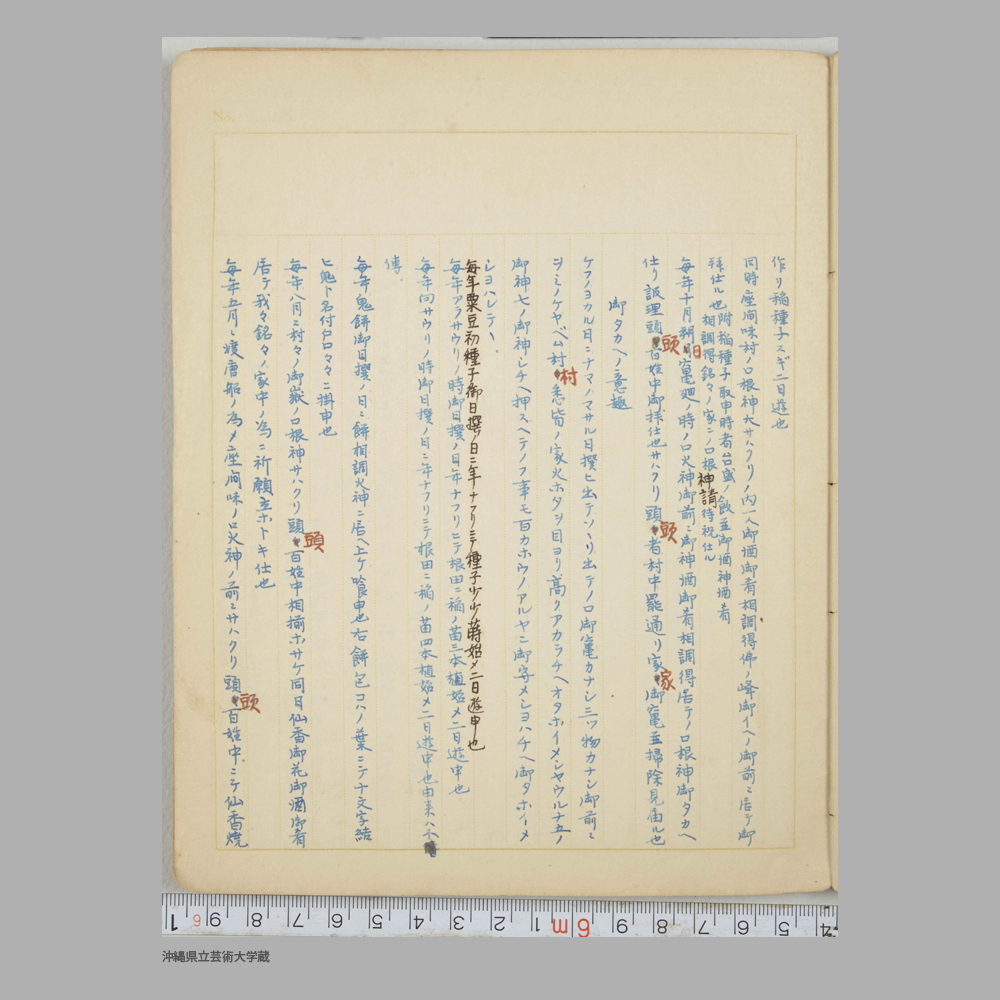 作リ稲種子スギ二日遊也
同時座間味村ノロ根神大サハクリノ内一人御酒御肴相調得仲ノ峰御イヘノ御前ニ居テ御
拝仕ル也附稲種子取申時者台盛ノ飯並御酒神酒肴
相調得銘々ノ家ニノロ根神請待祝仕ル
毎年十月朔日竃廻ノ時ノロ火神御前ニ御神酒御肴相調得居テノロ根神御タカヘ
仕リ設理頭百姓中御拝仕也サハクリ頭者村中罷通リ家御竃並掃除見届ル也
頭
日
頭
家
御タカヘノ意趣
ケフノヨカル日ニナマノマサル日撰ヒ出テソヽリ出テノロ御竃カナシ三ツ物カナシ御前ニ
ヲミノケヤベム村悉皆ノ家火ホタヲ目ヨリ高クアカラチヘオタホイメシヤウルナ五ノ
村
御神七ノ御神シチヘ押スヘテノフ事モ百カホウノアルヤニ御守メシヨハチヘ御タホイメ
シヨハレテヽ
毎年粟豆初種子御日撰ノ日ニ年ナフリニテ種子少少蒔始メ二日遊申也
毎年アラサウリノ時御日撰ノ日年ナフリニテ根田ニ稲ノ苗三本植始メ二日遊申也
毎年向サウリノ時御日撰ノ日ニ年ナフリニテ根田ニ稲ノ苗四本植始メ二日遊申也由来ハ不
傳
毎年鬼餅御日撰ノ日ニ餅相調火神ニ居ヘ上ケ喰申也右餅包コハノ葉ニテ十文字結
ヒ鬼ト名付戸口々々ニ掛申也
毎年八月ニ村々ノ御嶽ノロ根神サハクリ頭百姓中相揃ホサケ同日仙香御花御酒御肴
頭
居テ我々銘々ノ家中ノ為ニ祈願立ホトキ仕也
毎年五月ニ渡唐船ノ為メ座間味ノロ火神ノ前ニサハクリ頭百姓中ニテ仙香焼
頭
沖縄県立芸術大学蔵